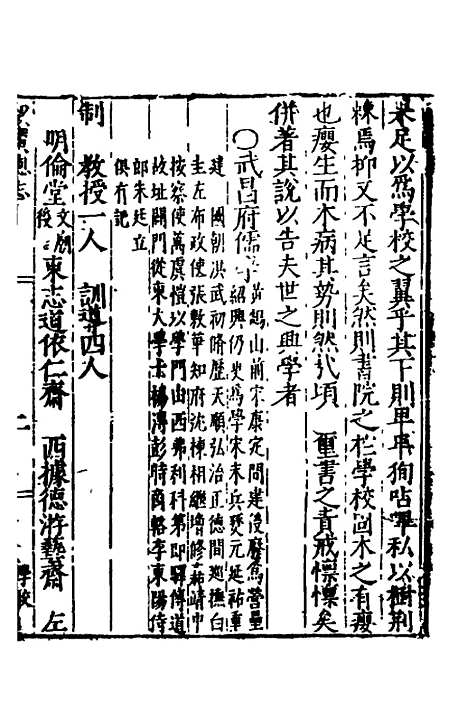 未足以爲學校之翼乎其下則畢事狥呫畢私以樹荆
棘焉抑又不足言矣然則書院之於學校固木之有癭
也癭生而木病其勢則然比頃　璽書之責戒懍懍矣
併著其說以告夫世之興學者
〇武昌府儒學黃鵠山前宋康定間建沒廢爲營壘
紹興仍更爲學宋末兵燹元延祐重
建　國朝洪武初脩歷天順弘治正德間廵撫白
圭左布政使張敷華知府沈棟相繼增修嘉靖中
按察使萬虞愷以學門山西弗利科第即驛傳道
故址闢門從東大學士楊溥彭時商輅李東陽侍
郎朱廷立
俱有記
制　教授一人　訓導四人
明倫堂文廟後　東志道依仁齋　西據德游藝齋　左
學校